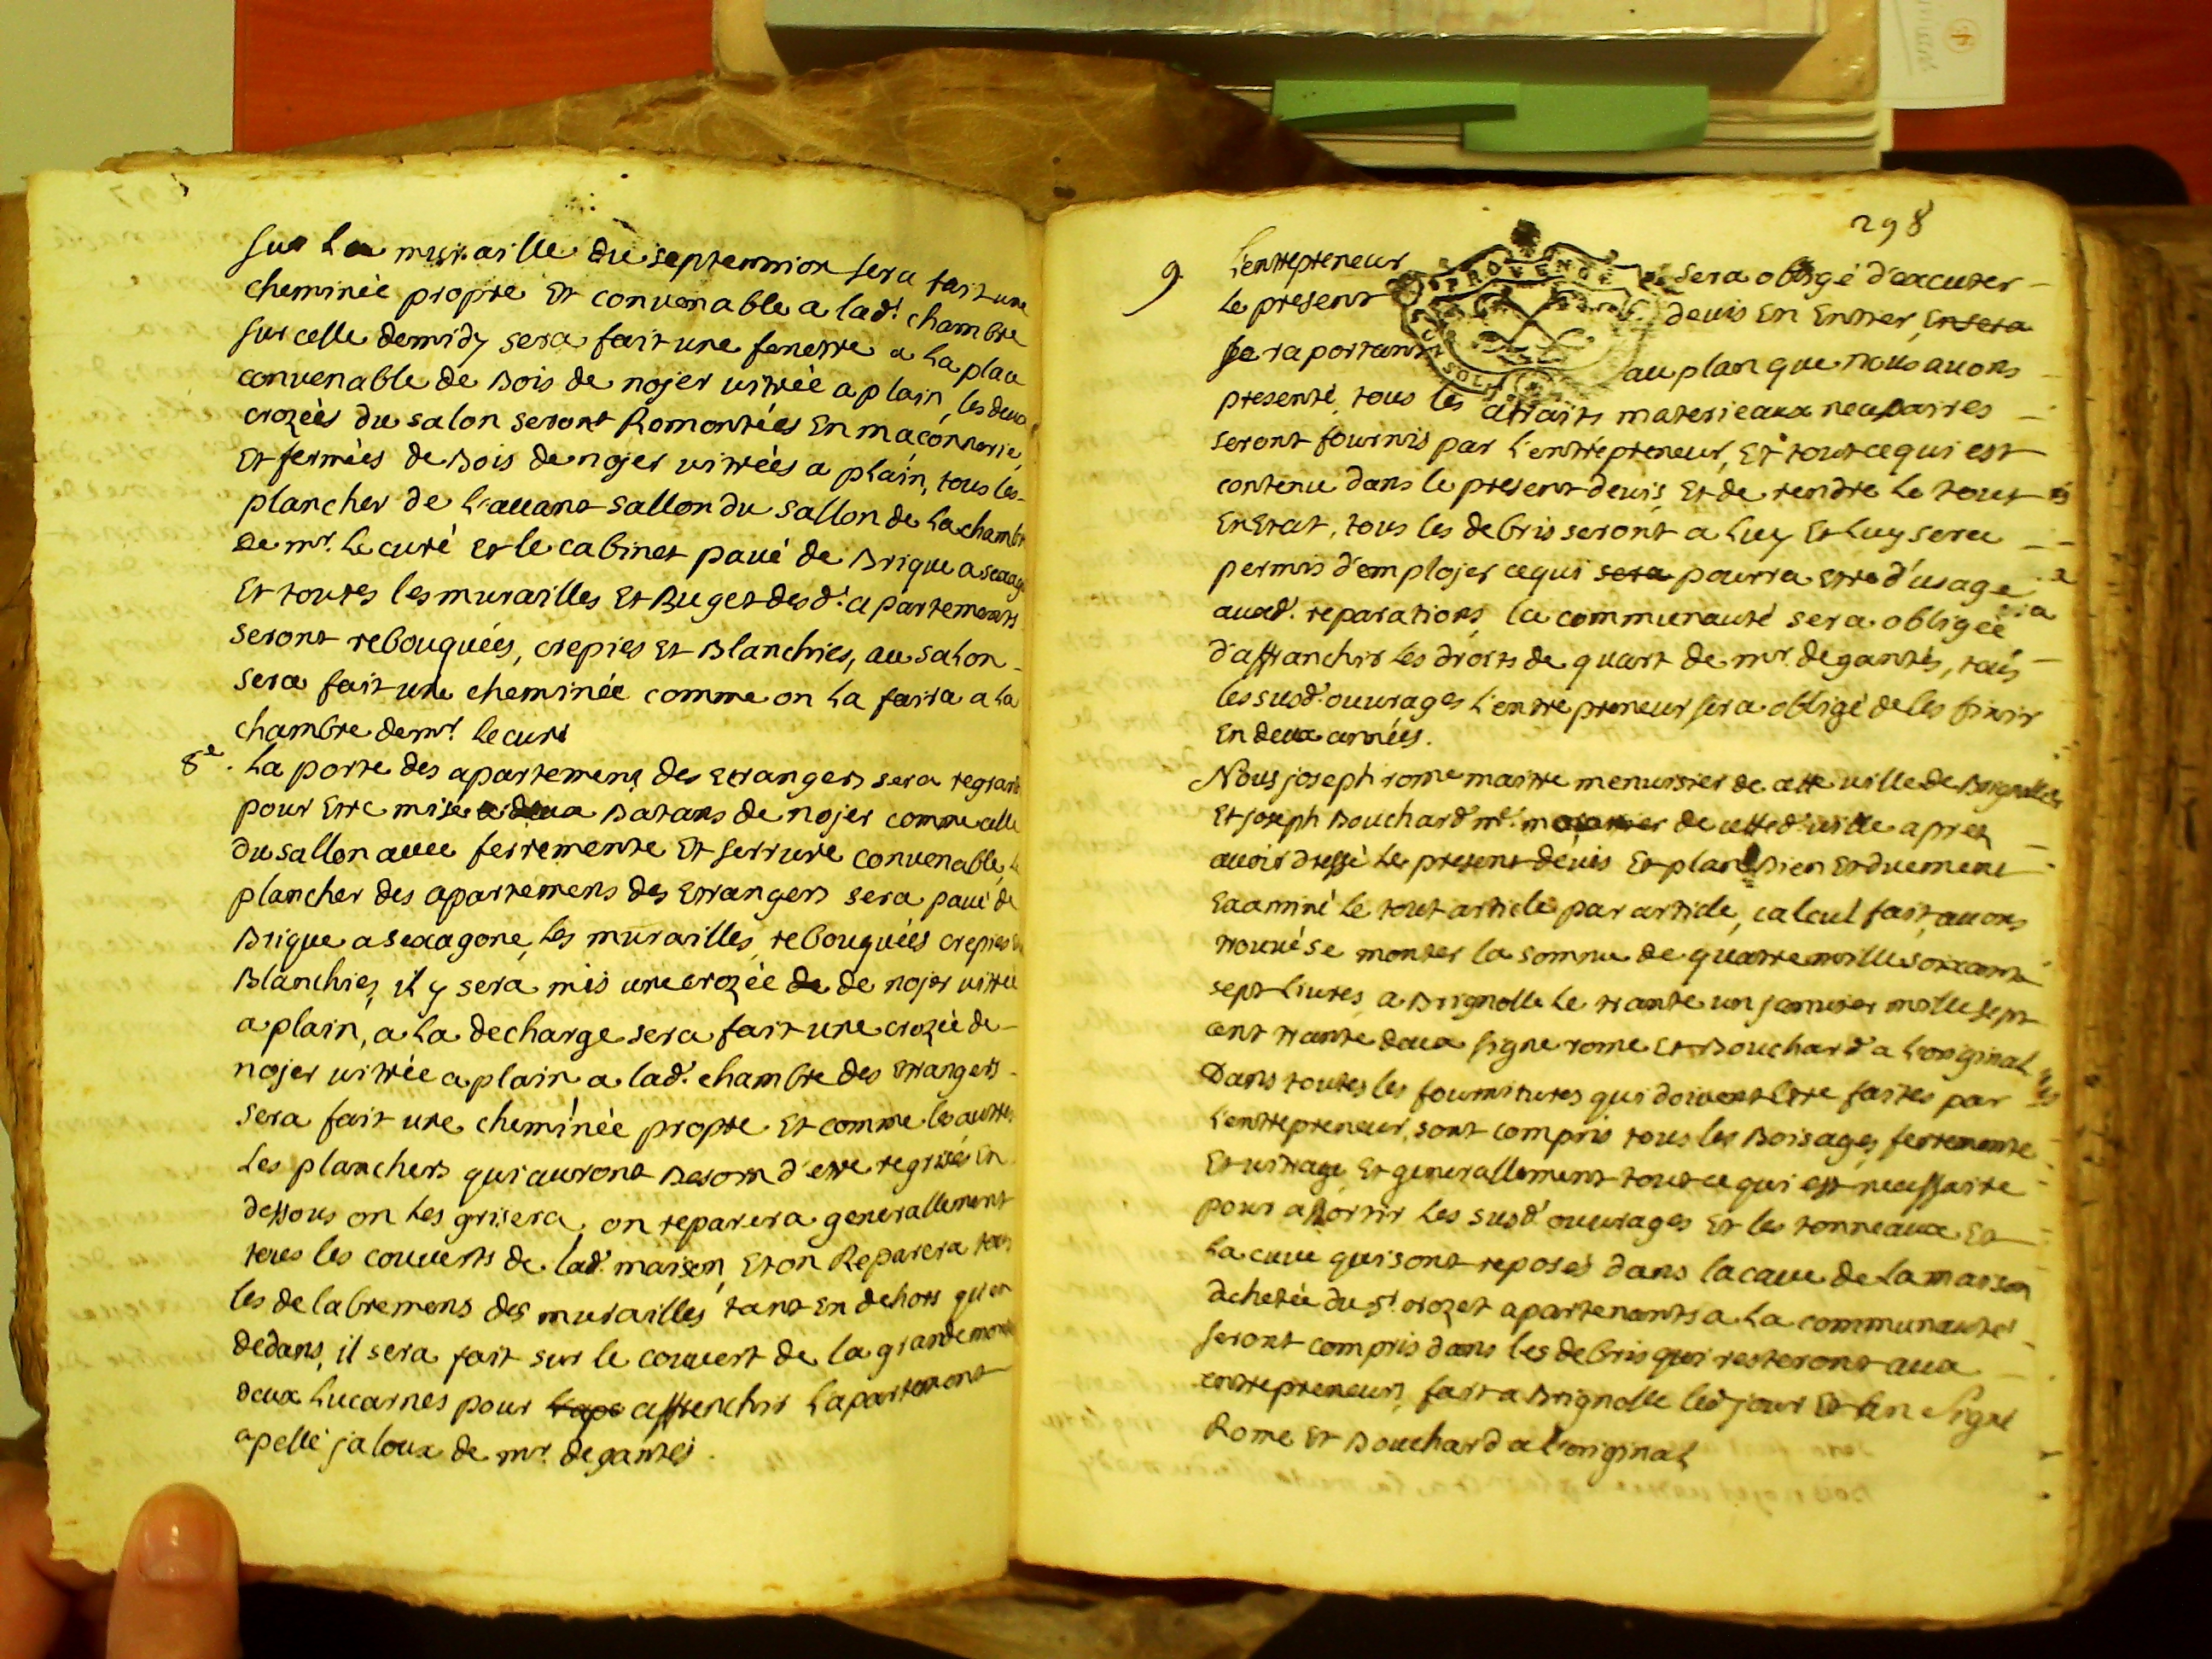 sur La muraille du septemtrion sera fait une
cheminée propre Et convenable a lad.t chambre
sur celle demidy sera fait une fenettre a La place
convenable de Bois de nojer vitrée a plain, les deux
crozées du salon seront Remontées En maconnerie,
Et fermées de Bois de nojer vitrées a plain, tous les
plancher de L'avant sallon du sallon de La chambre
De mr. Le curé et le cabinet pavé de Brique a sexag
Et toutes les murailles Et Buget des d.t apartements
seront rebouquées, crepies Et Blanchies, au salon
sera fait une cheminée comme on La faira a La
chambre de mr. le curé
8e. La porte des apartemens des Etrangers sera regrandi
pour Etre mise a deux Batans de nojer comme celle
du sallon avec ferremente Et serrure convenable, Le
plancher des apartemens des Etrangers sera pavé de
Brique a sexagone, Les murailles, rebouquées crepies Et
Blanchies, il y sera mis une crozée de de nojer vitrée
a plain, a La decharge sera fait une crozée de
nojer vitrée a plain a lad.t chambre des Etrangers
sera fait une cheminée propre Et comme les autres
Les planchers qui auront Besoin d'etre regrisés En
dessous on Les grisera, on reparera generallement
tous les couverts de lad.t maison, Et on Reparera tous
les delabremens des murailles tant En dehors qu'en
dedans, il sera fait sur le couvert de la grande montée
deux Lucarnes pour L'apa affrenchir L'apartement
apellé jaloux de mr. degantés.
298
9 L'entrepreneur sera obligé d'exccuter
Le present devis En Entier, En sera
se raportant au plan que nous avons
presenté, tous les attraits materieaux necessaires
seront fournis par L'entrepreneur, Et tout ce qui est
contenu dans le present devis, Et de rendre Le tout
En Etat, tous les debris seront a Luy Et Luy sera
permis d'emplojer ce qui sera pourra Etre d'usage
auxd.t reparations, la communauté sera obligée
d'affranchir Les droits de quart de mr. degantés, tous
les susd.t ouvrages L'entrepreneur sera obligé de les finir
En deux années.
Nous joseph rome maitre menuisier de cette ville de Brignolle
Et joseph Bouchard mt. masonier de cette d.t ville apres
avoir dressé Le present devis Et plan Bien Et duement
Examiné Le tout article par article, calcul fait, avons
trouvé se monter la somme de quatre mille soixante
sept Livres, a Brignolle Le trante un janvier mille sept
cent trante deux signe rome Et Bouchard a L'original
Dans toutes les fournitures qui doivent Etre faites par
L'entrepreneur, sont compris tous les Boisages, ferremente
Et vitrage Et generallement tout ce qui est necessaire
pour assortir Les susd.t ouvrages Et les tonneaux Et
La cuve qui sont reposés dans la cave de La maison
achetée du Sr. crozet apartenants a La communauté
seront compris dans les debris qui resteront aux
entrepreneurs, fait a Brignolle led.t jour Et an Signé
Rome Et Bouchard a L'original